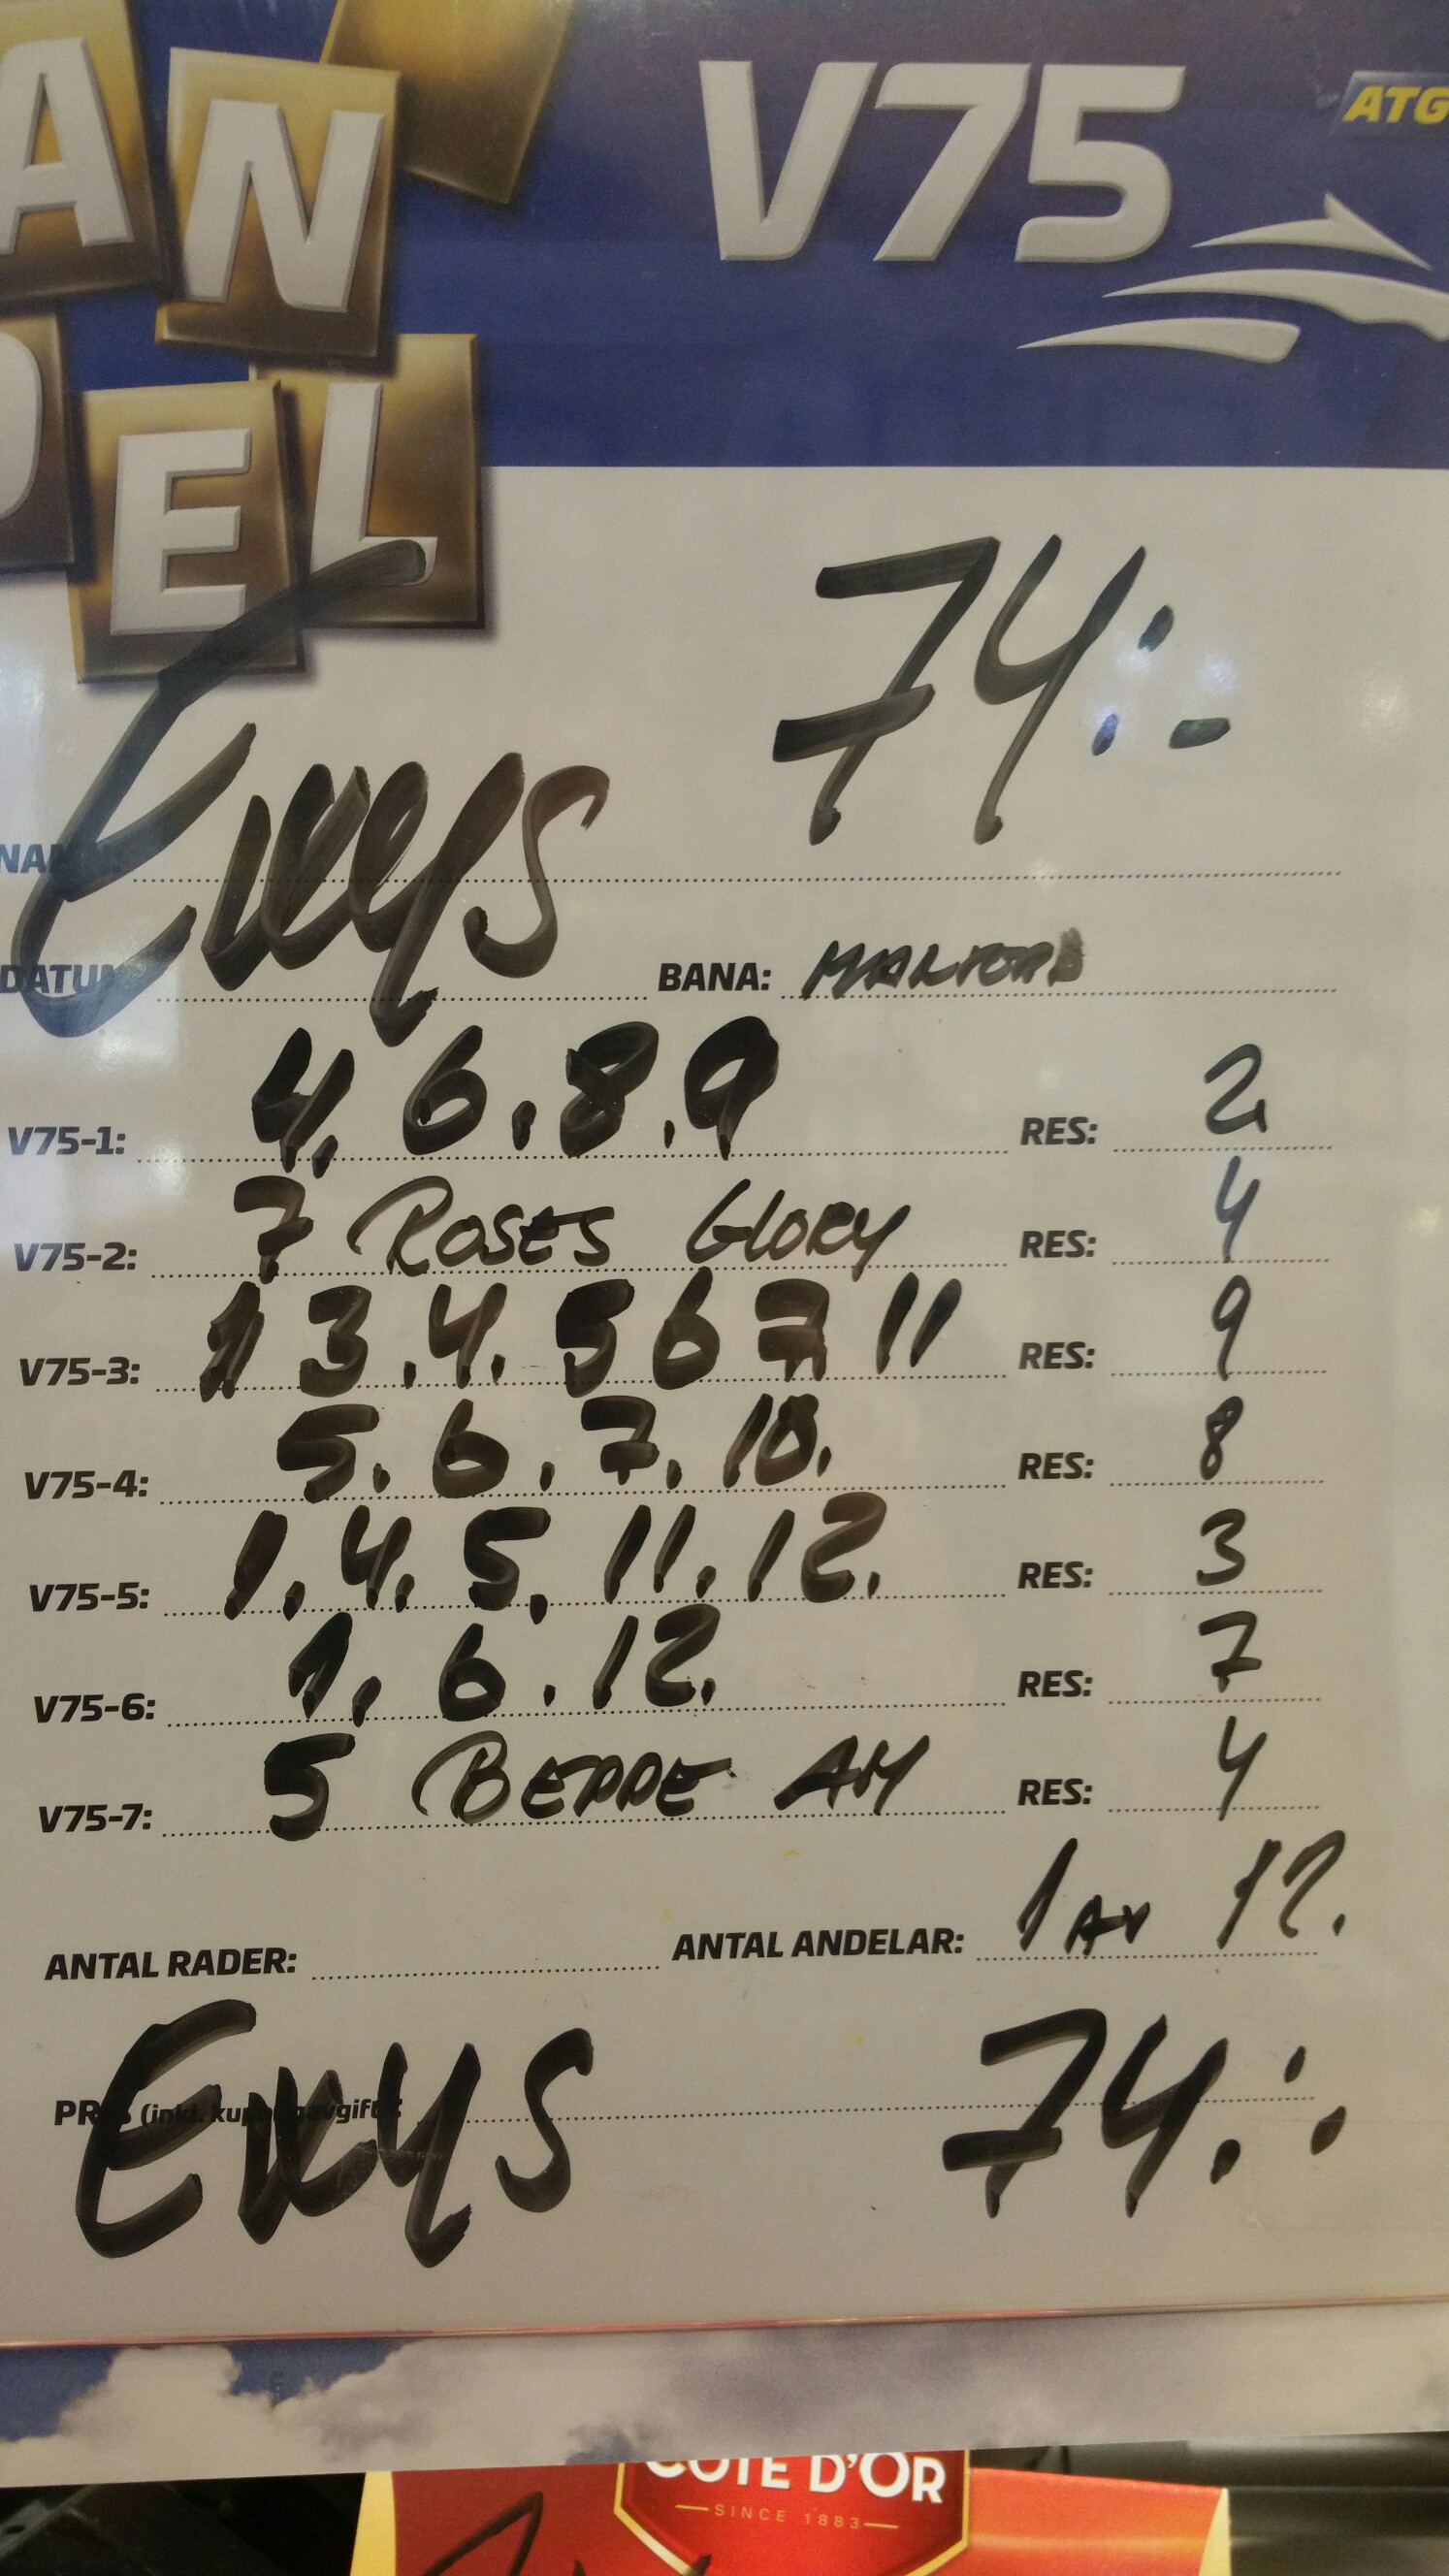 AN V75 ATG
EL
74:-
NAMN:
DATUM BANA:
V75-1: 4, 6. 8. 9 RES: 2
V75-2: 7 ROSES GLORY RES: 4
V75-3: 1 3. 4. 5 6 7 11 RES: 9
V75-4: 5. 6. 7. 10. RES: 8
V75-5: 1. 4. 5. 11. 12. RES: 3
V75-6: 1, 6. 12. RES: 7
V75-7: 5 BEDDE AM RES: 4
ANTAL RADER: ANTAL ANDELAR: 1 AV 12.
PRIS (inkl. kupongavgift):
74.:
COTE D'OR
SINCE 1883